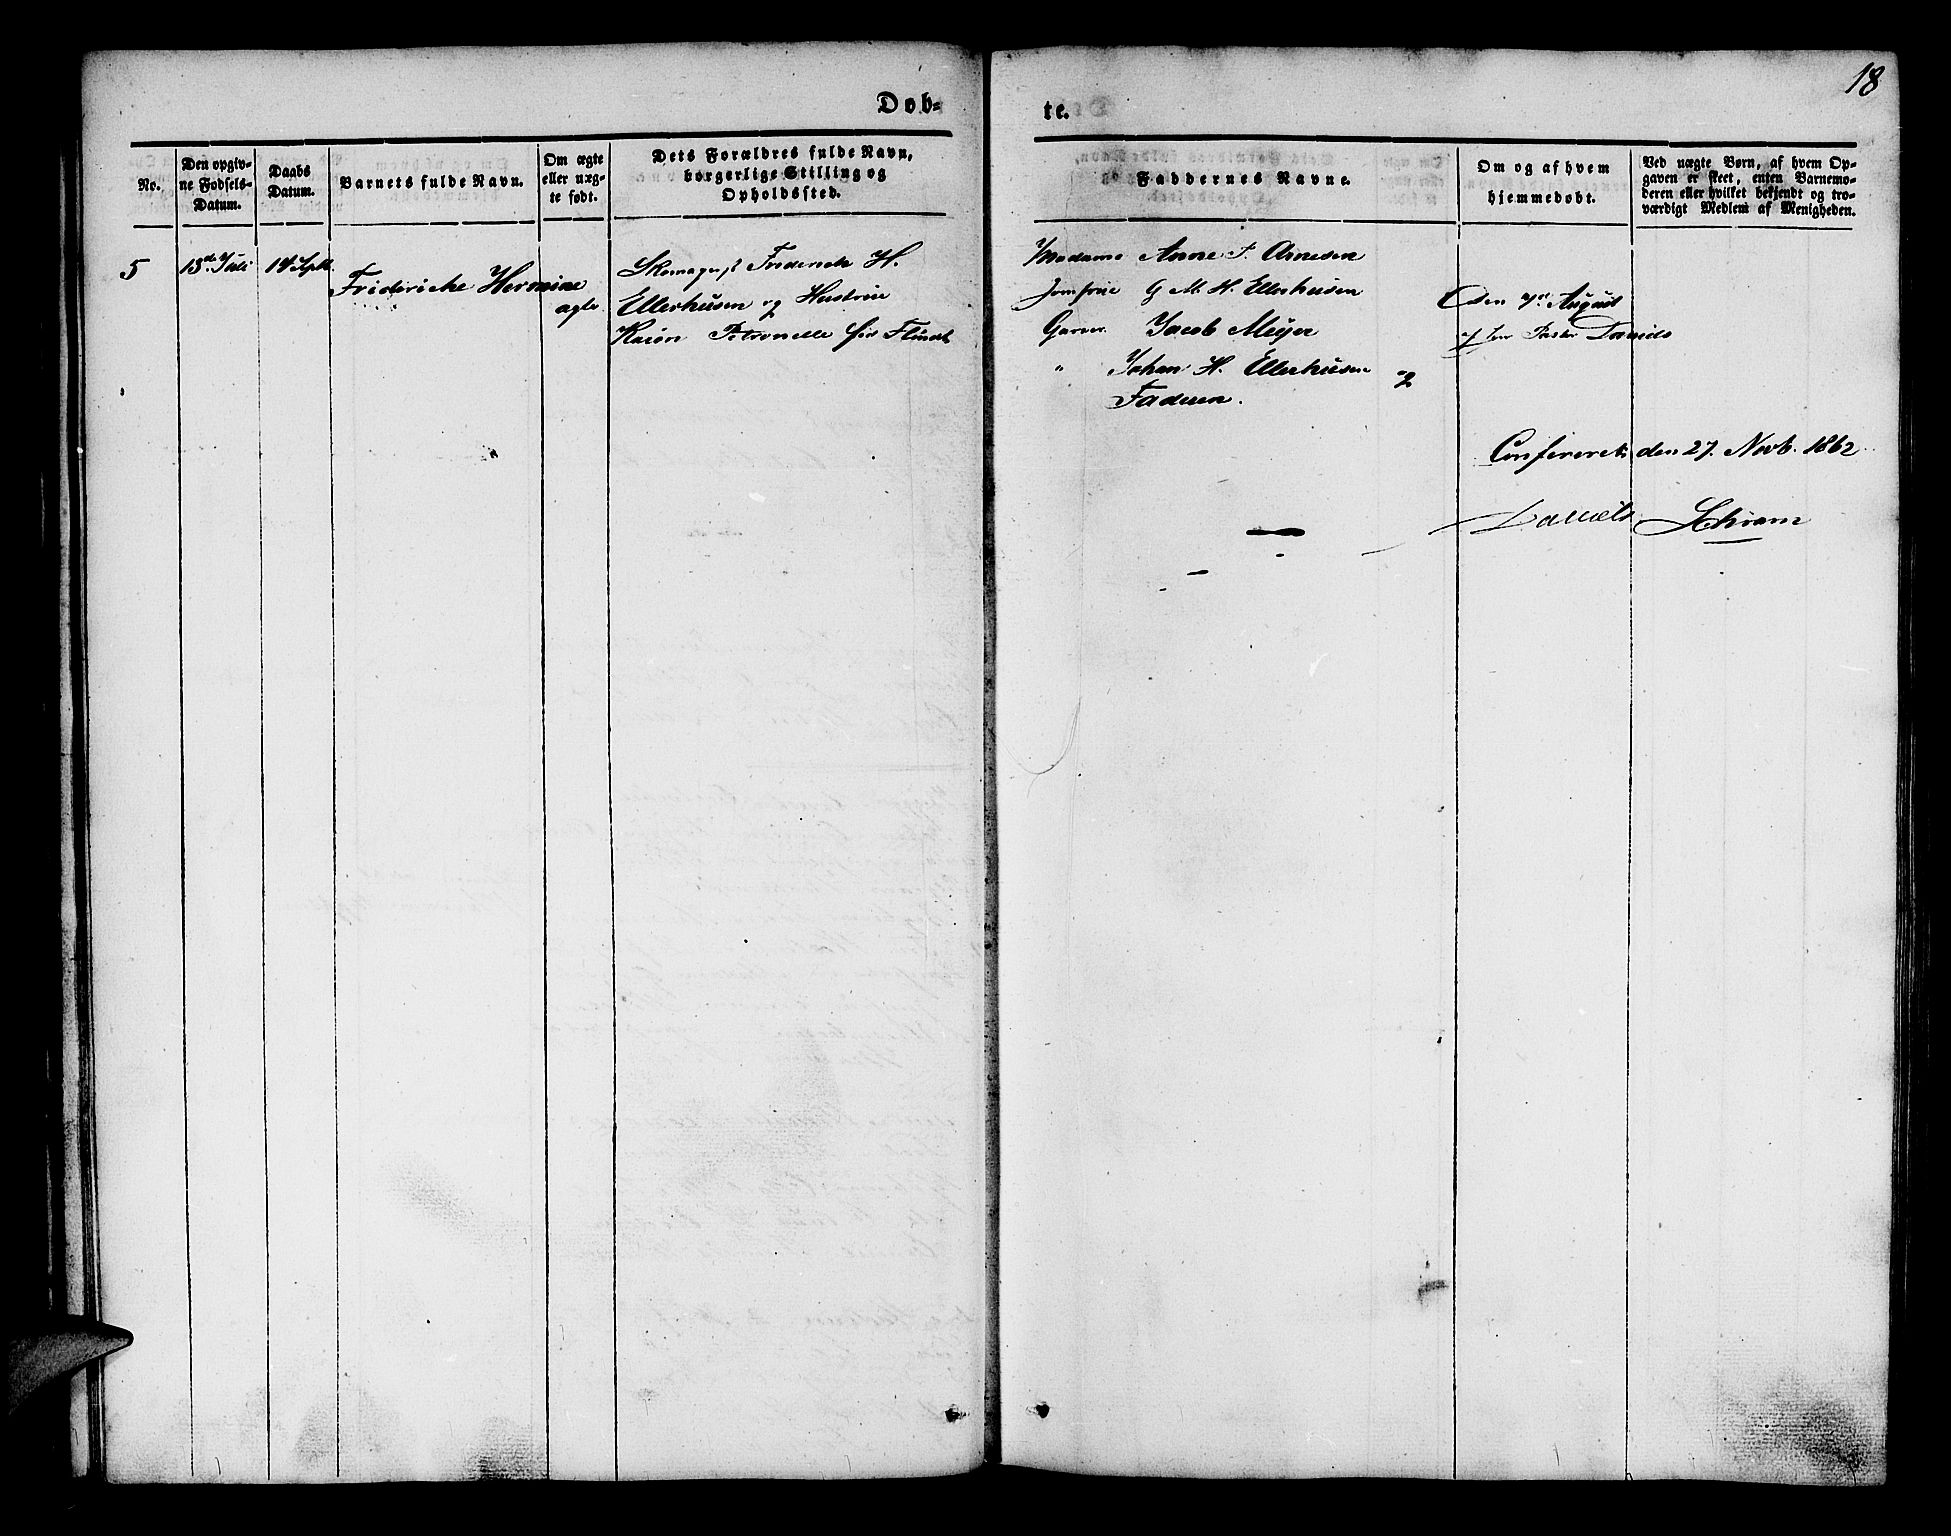 18
Døb-
te.
No.
Den opgiv-
ne Fødsels-
Datum.
Daabs
Datum.
Barnets fulde Navn.
Om ægte
eller uæg-
te født.
Dets Forældres fulde Navn,
borgerlige Stilling og
Opholdssted.
Faddernes Navne.
Om og af hvem
hjemmedøbt.
Ved uægte Børn, af hvem Op-
gaven er skeet, enten Barnemo-
deren eller hvilket bekjendt og tro-
værdigt Medlem af Menigheden.
5
13de Juli
14 Sept.
Friderike Hermine
ægte
Frederik H.
Ellerhusen og Hustrue
Petronelle
Madame Anne F. Arnesen
Jomfrue G M. H. Ellerhusen
Garver Jacob Meyer
" Johan H. Ellerhusen og
Faderen.
Den 7de August
af Pastor Daniels
Confereret den 27. Novb. 1862
Daniels Schram